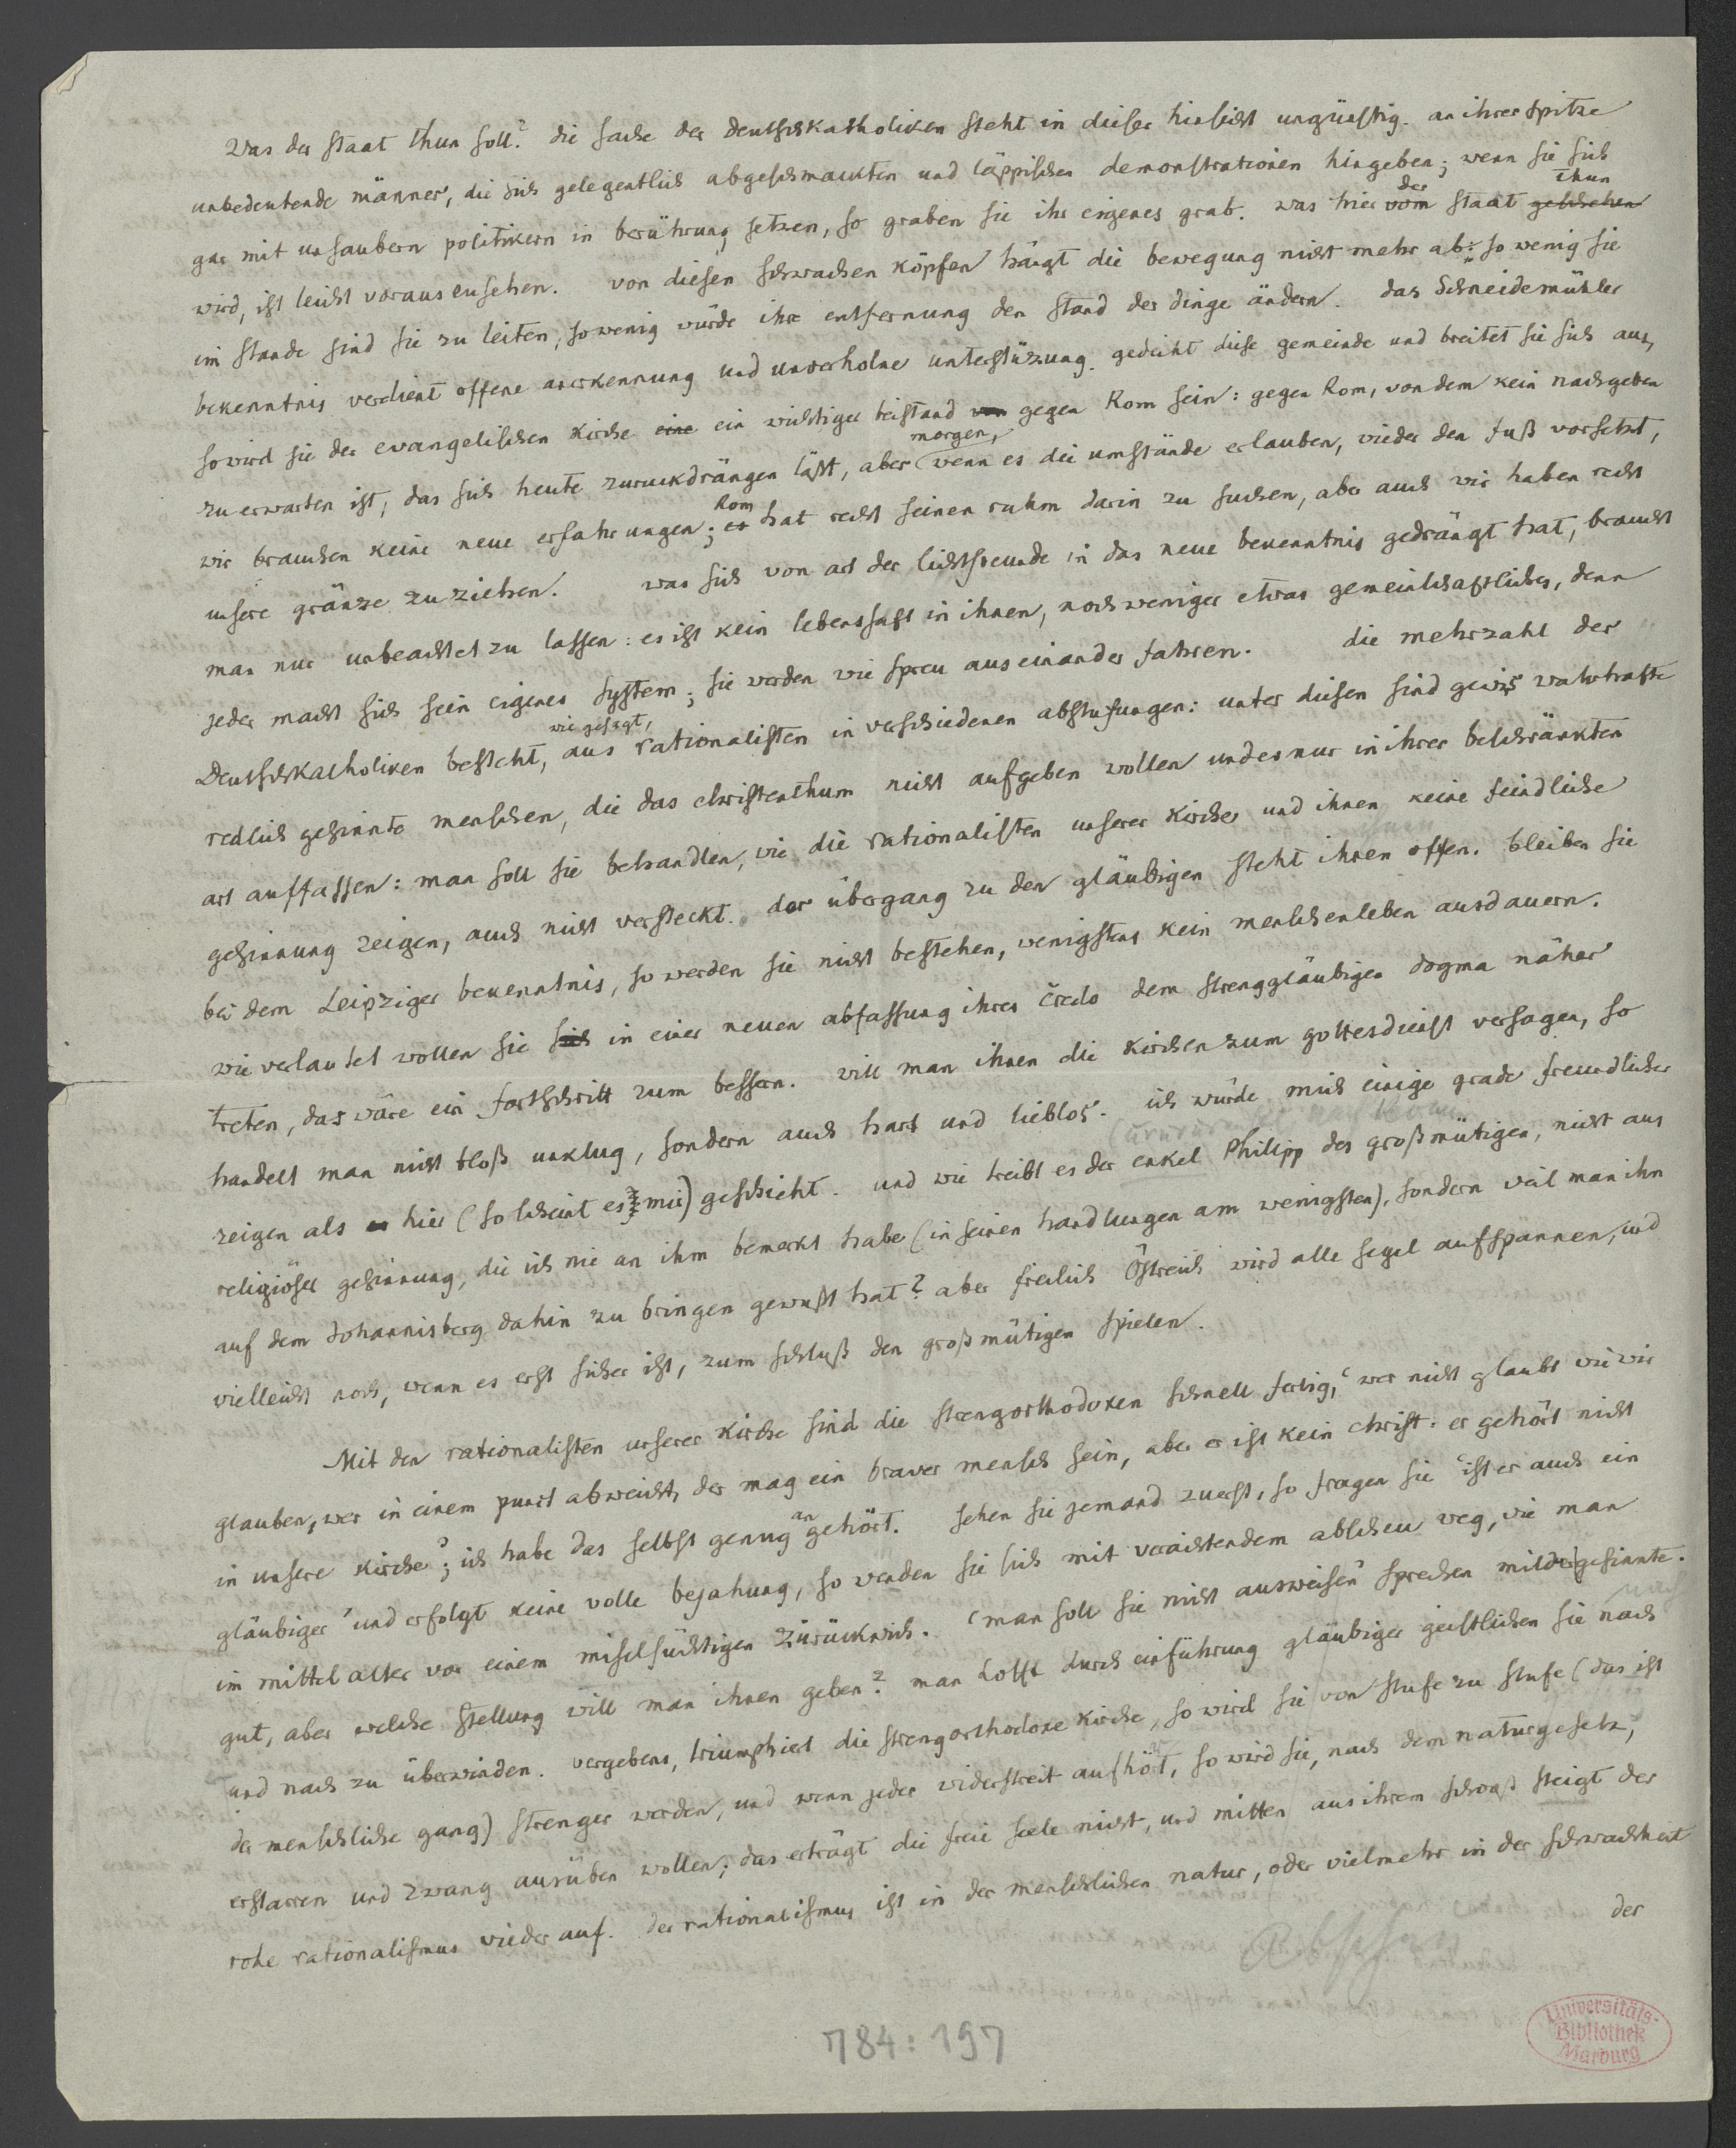 Was der staat thun soll? die sache der Deutschkatholiken steht in dieser hinsicht ungünstig. an ihrer spitze
unbedeutende männer, die sich gelegentlich abgeschmackten und läppischen demonstrationen hingeben; wenn sie sich
gar mit unsaubern politikern in berührung setzen, so graben sie ihr eigenes grab. was hier vom der staat geschehen thun
wird, ist leicht vorauszusehen. von diesen schwachen köpfen hängt die bewegung nicht mehr ab: so wenig sie
im stande sind sie zu leiten, so wenig würde ihre entfernung den stand der dinge ändern. das Schneidemühler
bekenntnis verdient offene anerkennung und unverholne unterstüzung. gedeiht diese gemeinde und breitet sie sich aus,
so wird sie der evangelischen kirche eine ein wichtiger beistand von gegen Rom sein: gegen Rom, von dem kein nachgeben
zu erwarten ist, das sich heute zurückdrängen läßt, aber morgen, wenn es die umstände erlauben, wieder den fuß vorsetzt,
wir brauchen keine neue erfahrungen; es Rom hat recht seinen ruhm darin zu suchen, aber auch wir haben recht
unsere gränze zu ziehen. was sich von art der lichtfreunde in das neue bekenntnis gedrängt hat, braucht
man nur unbeachtet zu lassen: es ist kein lebenssaft in ihnen, noch weniger etwas gemeinschaftliches, denn
jeder macht sich sein eigenes system; sie werden wie spreu auseinander fahren. die mehrzahl der
Deutschkatholiken besteht, wie gesagt, aus rationalisten in verschiedenen abstufungen: unter diesen sind gewis wahrhafte
redlich gesinnte menschen, die das christenthum nicht aufgeben wollen und es nur in ihrer beschränkten
art auffassen: man soll sie behandlen, wie die rationalisten unserer kirche und ihnen keine feindliche
gesinnung zeigen, auch nicht versteckt. der übergang zu den gläubigen steht ihnen offen. bleiben sie
bei dem Leipziger bekenntnis, so werden sie nicht bestehen, wenigstens kein menschenleben ausdauern.
wie verlautet wollen sie sich in einer neuen abfassung ihres credo dem strenggläubigen dogma näher
treten, das wäre ein fortschritt zum bessern. will man ihnen die kirchen zum gottesdienst versagen, so
handelt man nicht bloß unklug, sondern auch hart und lieblos. ich würde mich einige grade freundlicher
zeigen als hier (so scheint es mir) geschieht. und wie treibt es der enkel Philipp des großmütigen, nicht aus
religiöser gesinnung, die ich nie an ihm bemerkt habe (in seinen handlungen am wenigsten), sondern weil man ihn
auf dem Johannisberg dahin zu bringen gewußt hat? aber freilich Östreich wird alle segel aufspannen, und
vielleicht noch, wenn es erst sicher ist, zum schluß den großmütigen spielen.
Mit den rationalisten unserer kirche sind die strengorthodoxen schnell fertig, 'wer nicht glaubt wie wir
glauben, wer in einem punct abweicht, der mag ein braver mensch sein, aber er ist kein christ. er gehört nicht
in unsere kirche'; ich habe das selbst genug an gehört. sehen sie jemand zuerst, so fragen sie 'ist er auch ein
gläubiger' und erfolgt keine volle bejahung, so wenden sie sich mit verachtendem abscheu weg, wie man
im mittelalter vor einem miselsüchtigen zurückwich. 'man soll sie nicht ausweisen' sprechen milder gesinnte.
gut, aber welche stellung will man ihnen geben? man hofft durch einführung gläubiger geistlichen sie nach
und nach zu überwinden. vergebens, triumphiert die strengorthodoxe kirche, so wird sie von stufe zu stufe (das ist
der menschliche gang) strenger werden, und wenn jeder widerstreit aufhört, so wird sie, nach dem naturgesetz,
erstarren und zwang ausüben wollen; das erträgt die freie seele nicht, und mitten aus ihrem schooß steigt der
rohe rationalismus wieder auf. der rationalismus ist in der menschlichen natur, oder vielmehr in der schwachheit
der
784:197
Universitäts-
Bibliothek
Marburg